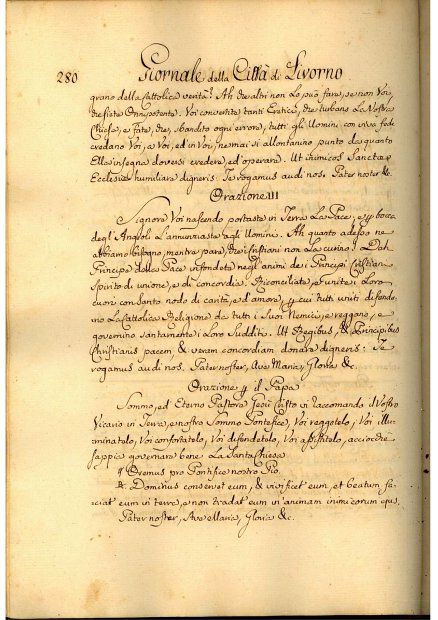 280 Giornale della Città di Livorno
grano della Cattolica verità? Ah che altri non lo può fare, se non Voi,
che siete Onnipotente. Voi convertite tanti Eretici, che turbano la Nostra
Chiesa, e fate, che, sbandito ogni errore, tutti gli Uomini con viva fede
credano Voi, a Voi, ed in Voi; ne mai si allontanino punto da quanto
Ella insegna doversi credere, ed operare. Ut inimicos Sanctæ
Ecclesiæ humiliare digneris: Te rogamus audi nos. Pater noster &c.
Orazione III
Signore Voi nascendo portaste in Terra la Pace, e p bocca
degl'Angioli l'annunziaste agli Uomini. Ah quanto adesso ne
abbiamo bisogno, mentre pare, che i Cristiani non la curino! Deh
Principe della Pace infondete negl'animi de i Principi Cristiani
Spirito di unione, e di concordia. Riconciliate, e unite i loro
cuori con Santo nodo di carità, e d'amore, p cui tutti uniti difenda-
no la Cattolica Religione da tutti i Suoi Nemici, e reggano, e
governino santamente i loro Sudditi. Ut Regibus, & Principibus
Christianis pacem & veram concordiam donare digneris: Te
rogamus audi nos. Pater noster, Ave Maria, Gloria &c.
Orazione p il Papa
Sommo, ed Eterno Pastore Gesù Cristo vi raccomando il Vostro
Vicario in Terra, e nostro Sommo Pontefice, Voi reggetelo, Voi illu-
minatelo, Voi confortatelo, Voi difendetelo, Voi assistitelo, acciocchè
sappia governare bene la Santa Chiesa
℣ Oremus pro Pontifice nostro Pio.
℟ Dominus conservet eum, & vivificet eum, et beatum fa-
ciat eum in terra, e non tradat eum in animam inimicorum ejus.
Pater noster, Ave Maria, Gloria &c.